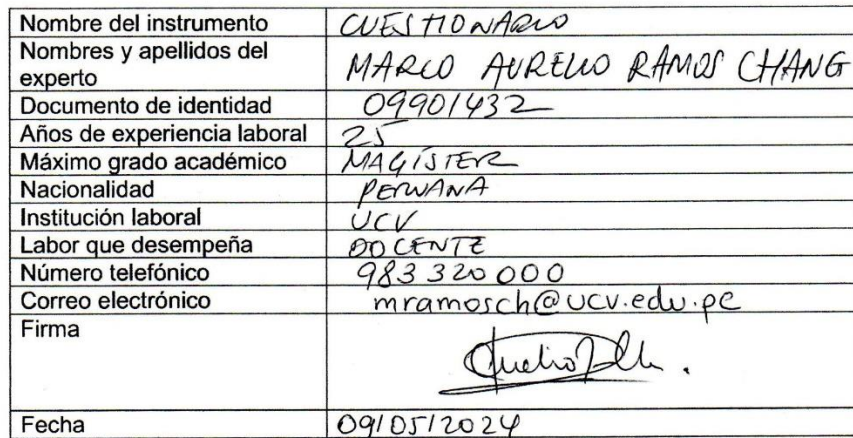 Nombre del instrumento CUESTIONARIO
Nombres y apellidos del
experto MARCO AURELIO RAMOS CHANG
Documento de identidad 09901432
Años de experiencia laboral 25
Máximo grado académico MAGÍSTER
Nacionalidad PERUANA
Institución laboral UCV
Labor que desempeña DOCENTE
Número telefónico 983 320 000
Correo electrónico mramosch@ucv.edu.pe
Firma
Fecha 09/05/2024